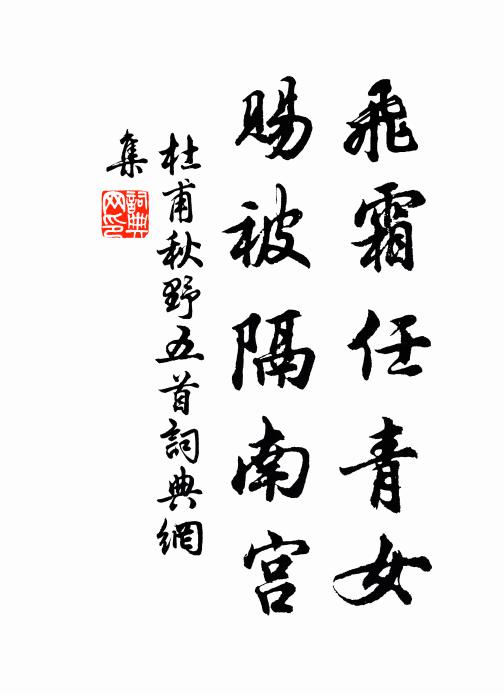 飛霜任青女
賜被隔南宮
杜甫秋野五首詞典網
集
詞典
网印